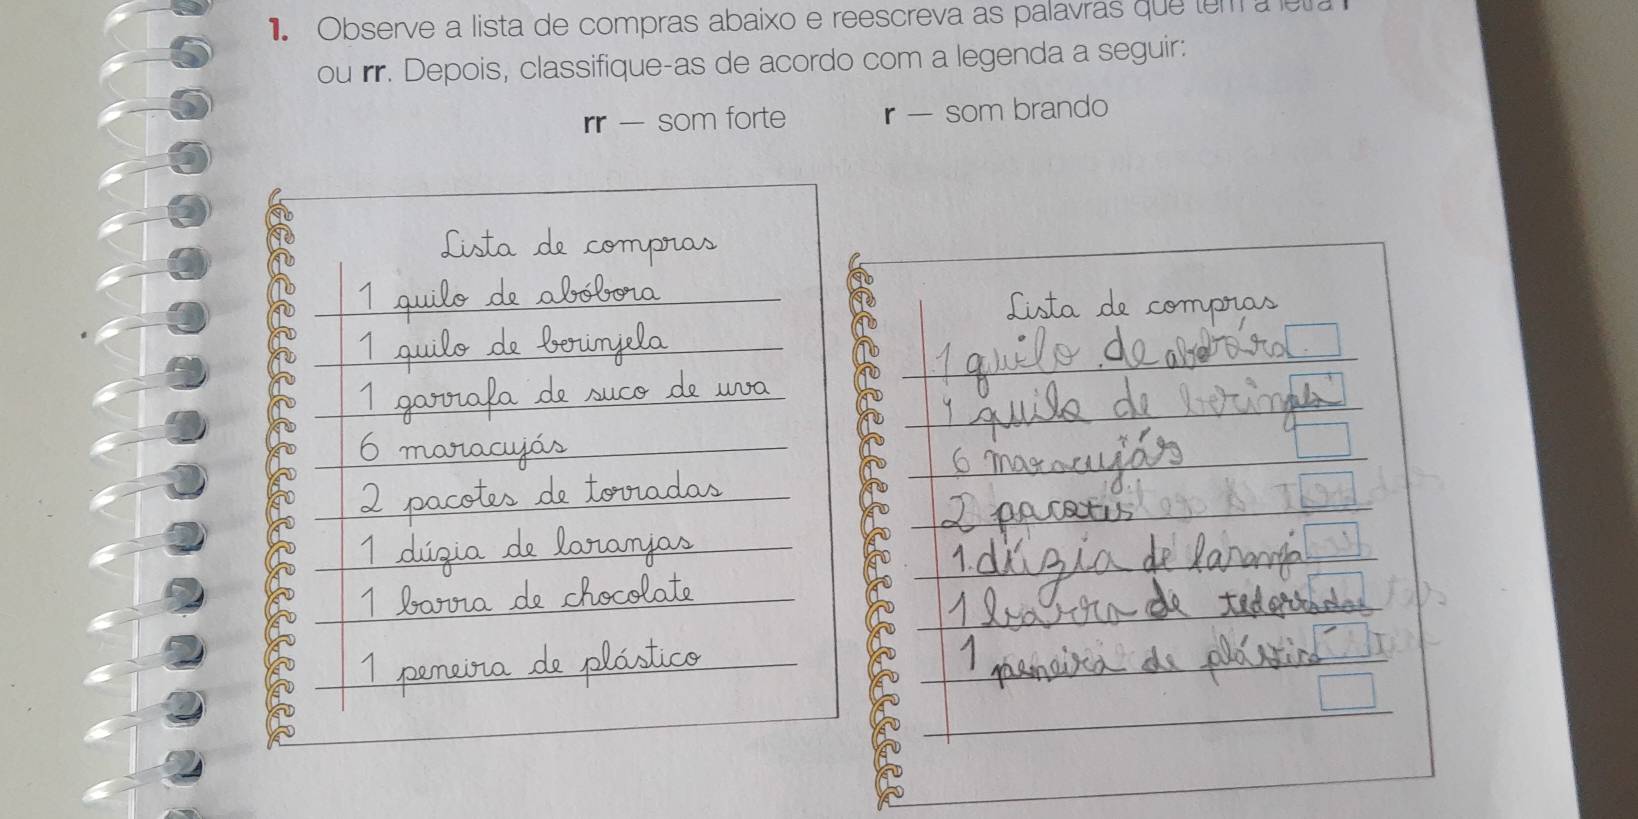 1. Observe a lista de compras abaixo e reescreva as palavras que têm a letra r
ou rr. Depois, classifique-as de acordo com a legenda a seguir:
rr — som forte r — som brando
Lista de compras
1 quilo de abóbora
1 quilo de berinjela
1 garrafa de suco de uva
6 maracujás
2 pacotes de torradas
1 dúzia de laranjas
1 barra de chocolate
1 peneira de plástico
Lista de compras
1 quilo de
1 quilo de
6 maracujás
2
1 dúzia de
1 de
1 peneira de